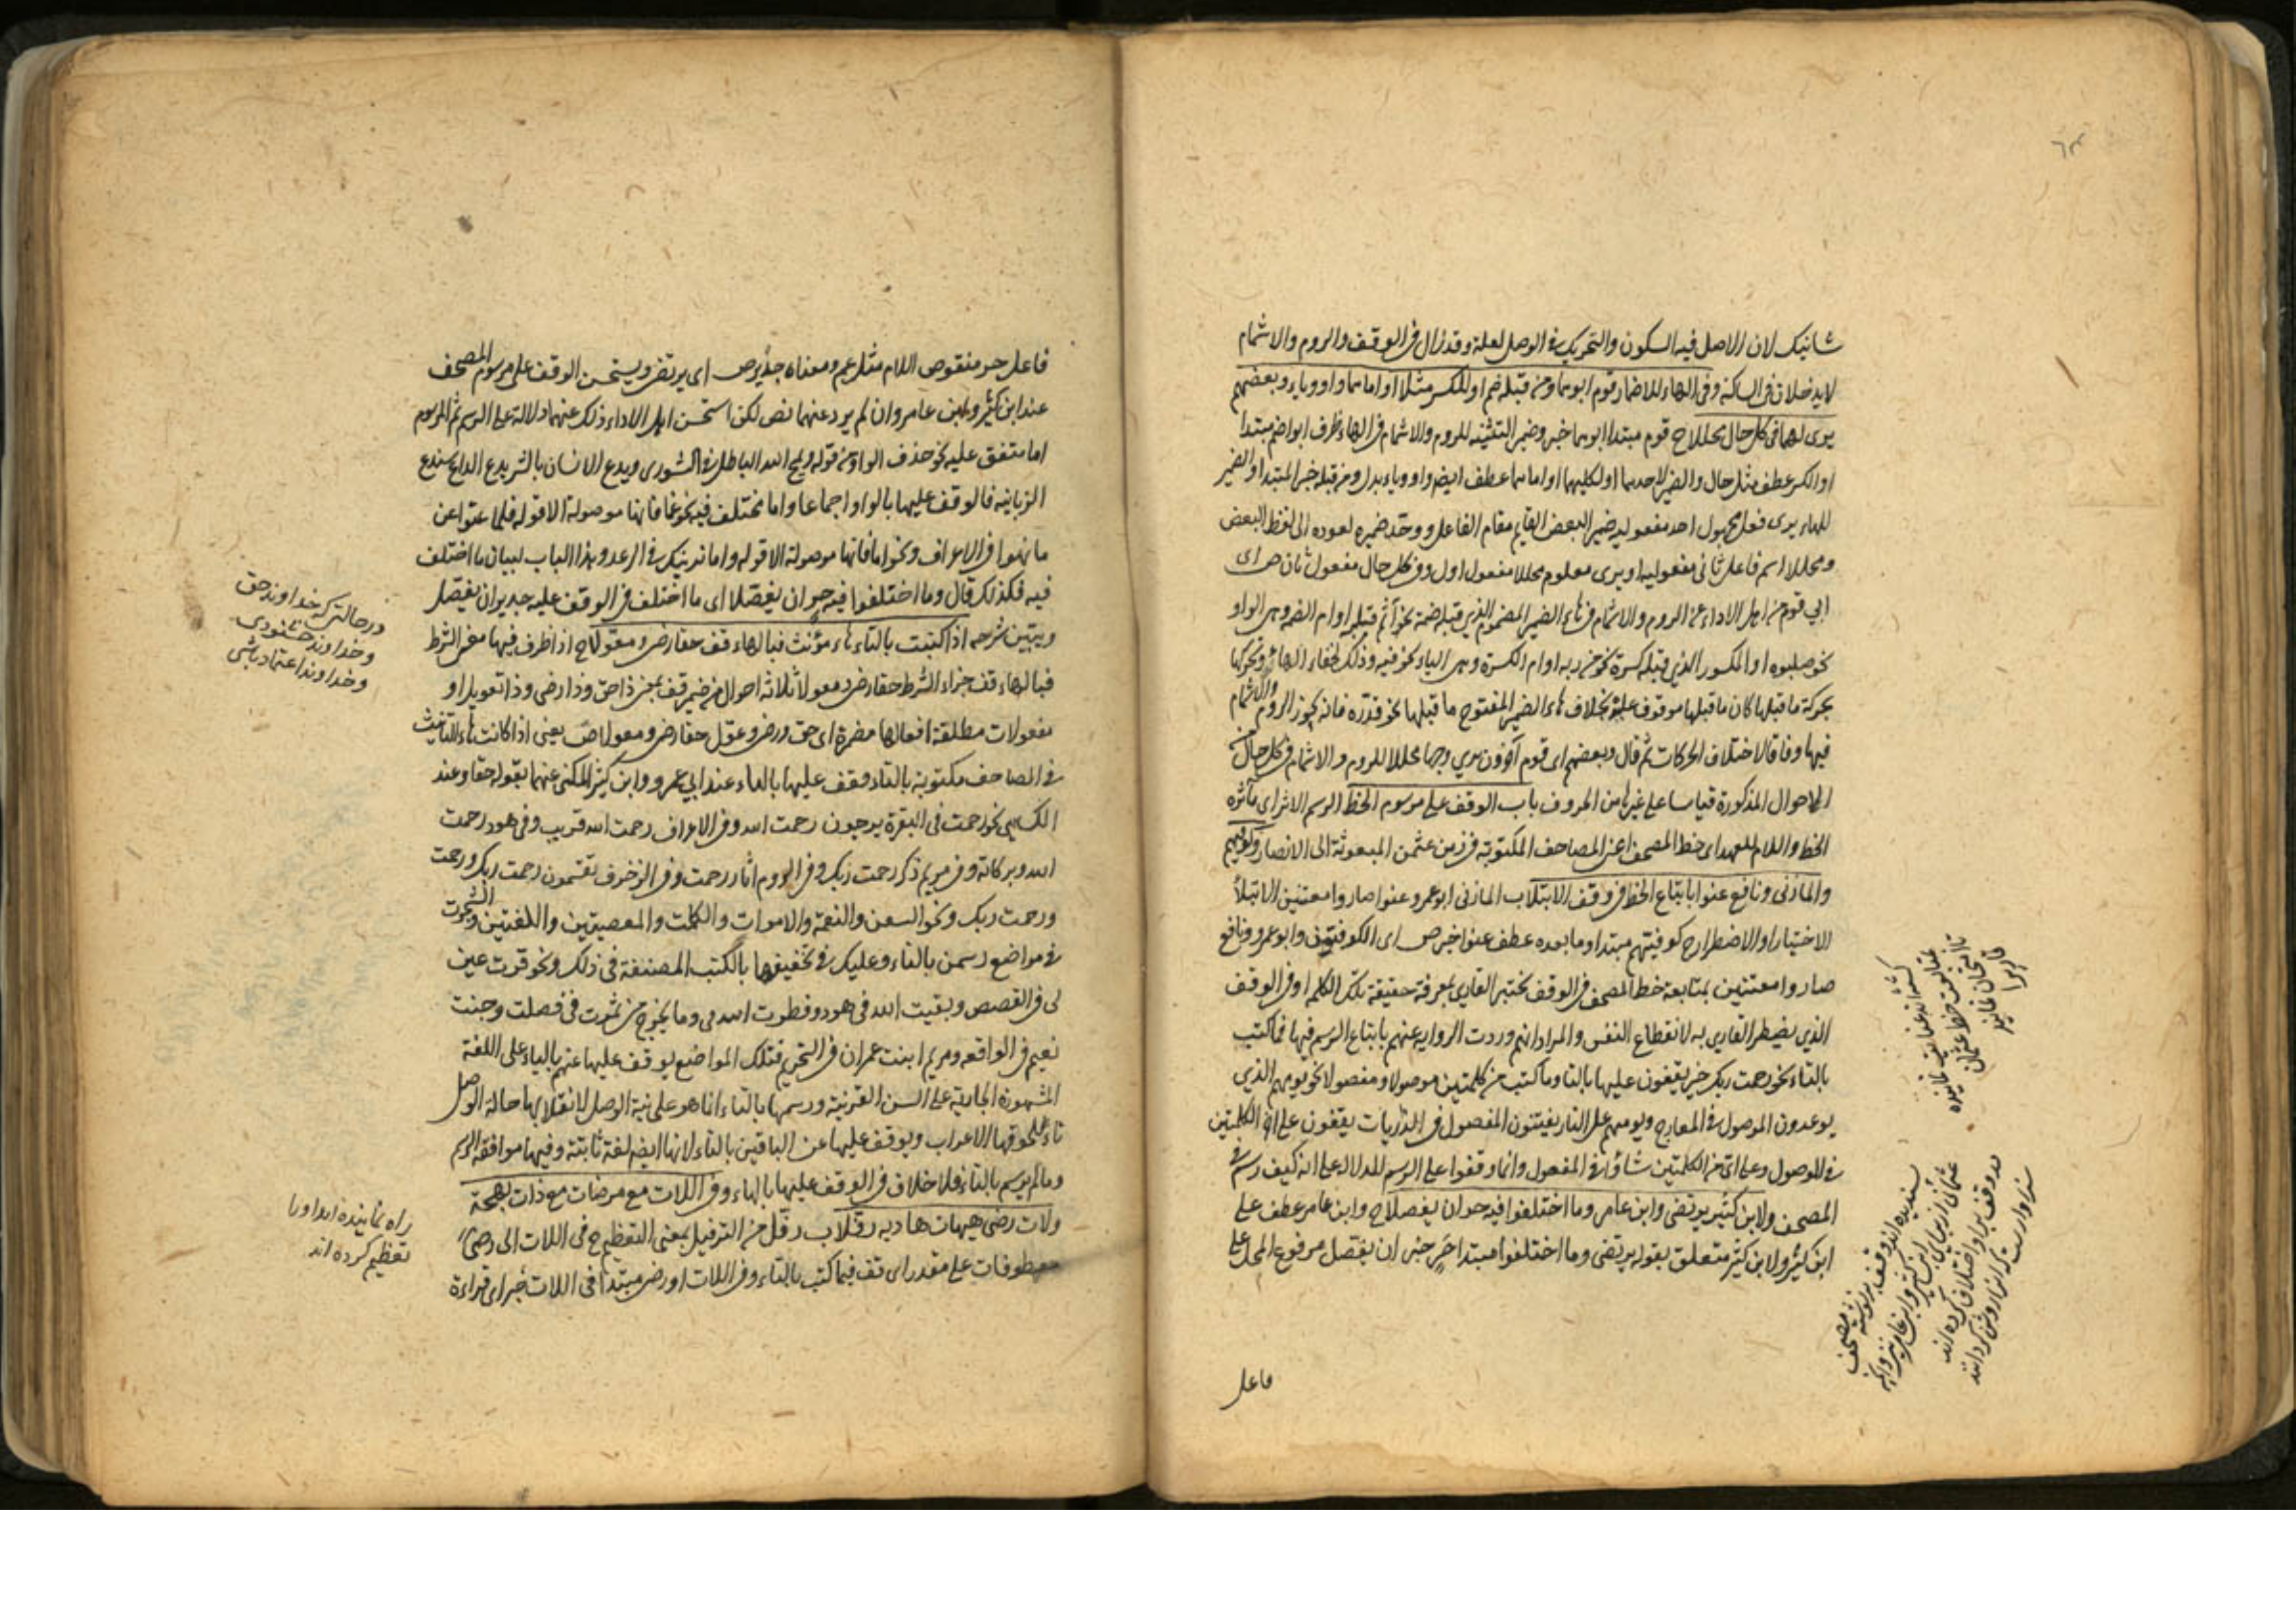 شانیک لان الاصل فیه السکون والتحریک فی الوصل لعلة وقد زال فی الوقف والروم والاشمام
لایدخلان فی الساکنة وفی الهاء للاضمار قوم ابوهما ومن قبله ضم او الکسر مثلا او اماهما واو ویاء وبعضهم
یری لهما فی کل حال محللا ح قوم مبتدا ابوهما خبر وضمیر التثنیه للروم والاشمام فی الهاء ظرف ابوا ضم مبتدا
او الکسر عطف مثلا حال والضمیر لاحدهما او لکلیهما او اماهما عطف ایضم واو ویاء بدل ومن قبله خبر المبتدا والضمیر
للهاء یری فعل مجهول احد مفعولیه ضمیر البعض القایم مقام الفاعل ووحد ضمیره لعوده الی لفظ البعض
ومحللا اسم فاعل ثانی مفعولیه او یری معلوم محللا مفعول اول وفی کل حال مفعول ثان ص ای
ابی قوم من اهل الاداء عن الروم والاشمام فی هاء الضمیر المضموم الذی قبله ضمة نحو آثم قبله او ام الضمه وهی الواو
نحو صلبوه او المکسور الذی قبله کسرة نحو من ربه او ام الکسرة وهی الیاء نحو فیه وذلک لخفاء الهاء وتحرکها
بحرکة ما قبلها کان ما قبلها موقوف علیه بخلاف هاء الضمیر المفتوح ما قبلها نحو قدره فانه یجوز الروم والاشمام
فیها وفاقا لاختلاف الحرکات ثم قال وبعضهم ای قوم آخرون یری وجها محللا للروم والاشمام فی کل حال من
الاحوال المذکورة قیاسا علی غیرها من الحروف باب الوقف علی مرسوم الخط الرسم الاثر ای مآثره
الخط واللام للعهد ای خط المصحف اعنی المصاحف المکتوبة فی زمن عثمن المبعوثة الی الانصار وکوفیهم
والمازنی ونافع عنوا باتباع الخط فی وقف الابتلا ب المازنی ابو عمرو عنوا صاروا معتنین الابتلا
الاختبار او الاضطرار ح کوفیتهم مبتدا وما بعده عطف عنوا خبر ص ای الکوفیون وابو عمرو ونافع
صاروا معتنین بمتابعة خط المصحف فی الوقف یختبر القاری بمعرفة حقیقة تلک الکلم او فی الوقف
الذی یضطر القاری به لانقطاع النفس والمراد انهم وردت الروایه عنهم باتباع الرسم فیها فما کتب
بالتاء نحو رحمت ربک خیر یقفون علیها بالتا وما کتب من کلمتین موصولا ومفصولا نحو یومهم الذی
یوعدون الموصول فی المعارج ویوم هم علی النار یفتنون المفصول فی الذاریات یقفون علی الکلمتین
فی الموصول وعلی ای من الکلمتین شاؤا فی المفصول وانما وقفوا علی الرسم للدلالة علی انه کیف رسم فی
المصحف ولابن کثیر یرتضی وابن عامر وما اختلفوا فیه حر ان یفصلا ح وابن عامر عطف علی
ابن کثیر ولابن کثیر متعلق بقوله یرتضی وما اختلفوا مبتدا حر خبر ان یفصل مرفوع المحل علی
فاعل
فاعل حر منقوص اللام مثل عم ومعناه جدیر ص ای یرتضی ویستحسن الوقف علی مرسوم المصحف
عند ابن کثیر وابن عامر وان لم یرد عنهما نص لکن استحسن اهل الاداء ذلک عنهما دلالة علی الرسم ثم المرسوم
اما متفق علیه نحو حذف الواو من قوله ویمح الله الباطل فی الشوری ویدع الانسان بالشر یدع الداع سندع
الزبانیه فالوقف علیها بالواو اجماعا واما مختلف فیه نحو عما فانها موصولة الا قوله فلما عتوا عن
ما نهوا فی الاعراف ونحو اما فانها موصولة الا قوله واما نرینک فی الرعد وهذا الباب لبیان ما اختلف
فیه فلذلک قال وما اختلفوا فیه حر ان یفصلا ای ما اختلف فی الوقف علیه جدیر ان یفصل
ویتبین شرحه اذا کتبت بالتاء هاء مؤنث فبالهاء قف حقا رضی ومعولا ح اذا ظرف فیها معنی الشرط
فبالهاء قف جزاء الشرط حقا رضی ومعولا ثلاثه احوال من ضمیر قف بمعنی ذا حق وذا رضی وذا تعویل او
مفعولات مطلقة افعالها مضمرة ای حق ورضی وعول حقا رضی ومعولا ص یعنی اذا کانت هاء التانیث
فی المصاحف مکتوبة بالتاء فقف علیها بالهاء عند ابی عمرو وابن کثیر المکنی عنهما بقوله حقا وعند
الکسایی نحو رحمت فی البقرة یرجون رحمت الله وفی الاعراف رحمت الله قریب وفی هود رحمت
الله وبرکاته وفی مریم ذکر رحمت ربک وفی الروم اثار رحمت وفی الزخرف یقسمون رحمت ربک ورحمت
ورحمت ربک ونحو السعن والنعمة والاموات والکلمت والمعصیتین واللغتین وشجرت
فی مواضع رسمن بالتاء وعلیک فی تحقیقها بالکتب المصنفة فی ذلک ونحو قرت عین
لی فی القصص وبقیت الله فی هود وفطرت الله وما یخرج من ثمرت فی فصلت وجنت
نعیم فی الواقعه ومریم ابنت عمران فی التحریم فتلک المواضع یوقف علیها عنهم بالهاء علی اللغة
المشهورة الجاریة علی السن القرشیة ورسمها بالتاء انما هو علی نیة الوصل لانقلابها حالة الوصل
تاء للحوقها الاعراب ویوقف علیها عن الباقین بالتاء لانها ایضم لغة ثابتة وفیها موافقة الرسم
وما لم یرسم بالتاء فلا خلاف فی الوقف علیها بالهاء وفی اللات مع مرضات مع ذات بهجة
ولات رضی هیهات هادیه رفلا ب رفل من الترفیل بمعنی التعظیم ح فی اللات الی رضی
معطوفات علی مقدر ای قف فیما کتب بالتاء وفی اللات او رضی مبتدا فی اللات خبر ای قراءة
درحالتی که خداوند حق
وخداوند خشنودی
وخداوند اعتماد باشی
راه نماینده او او را
تعظیم کرده اند